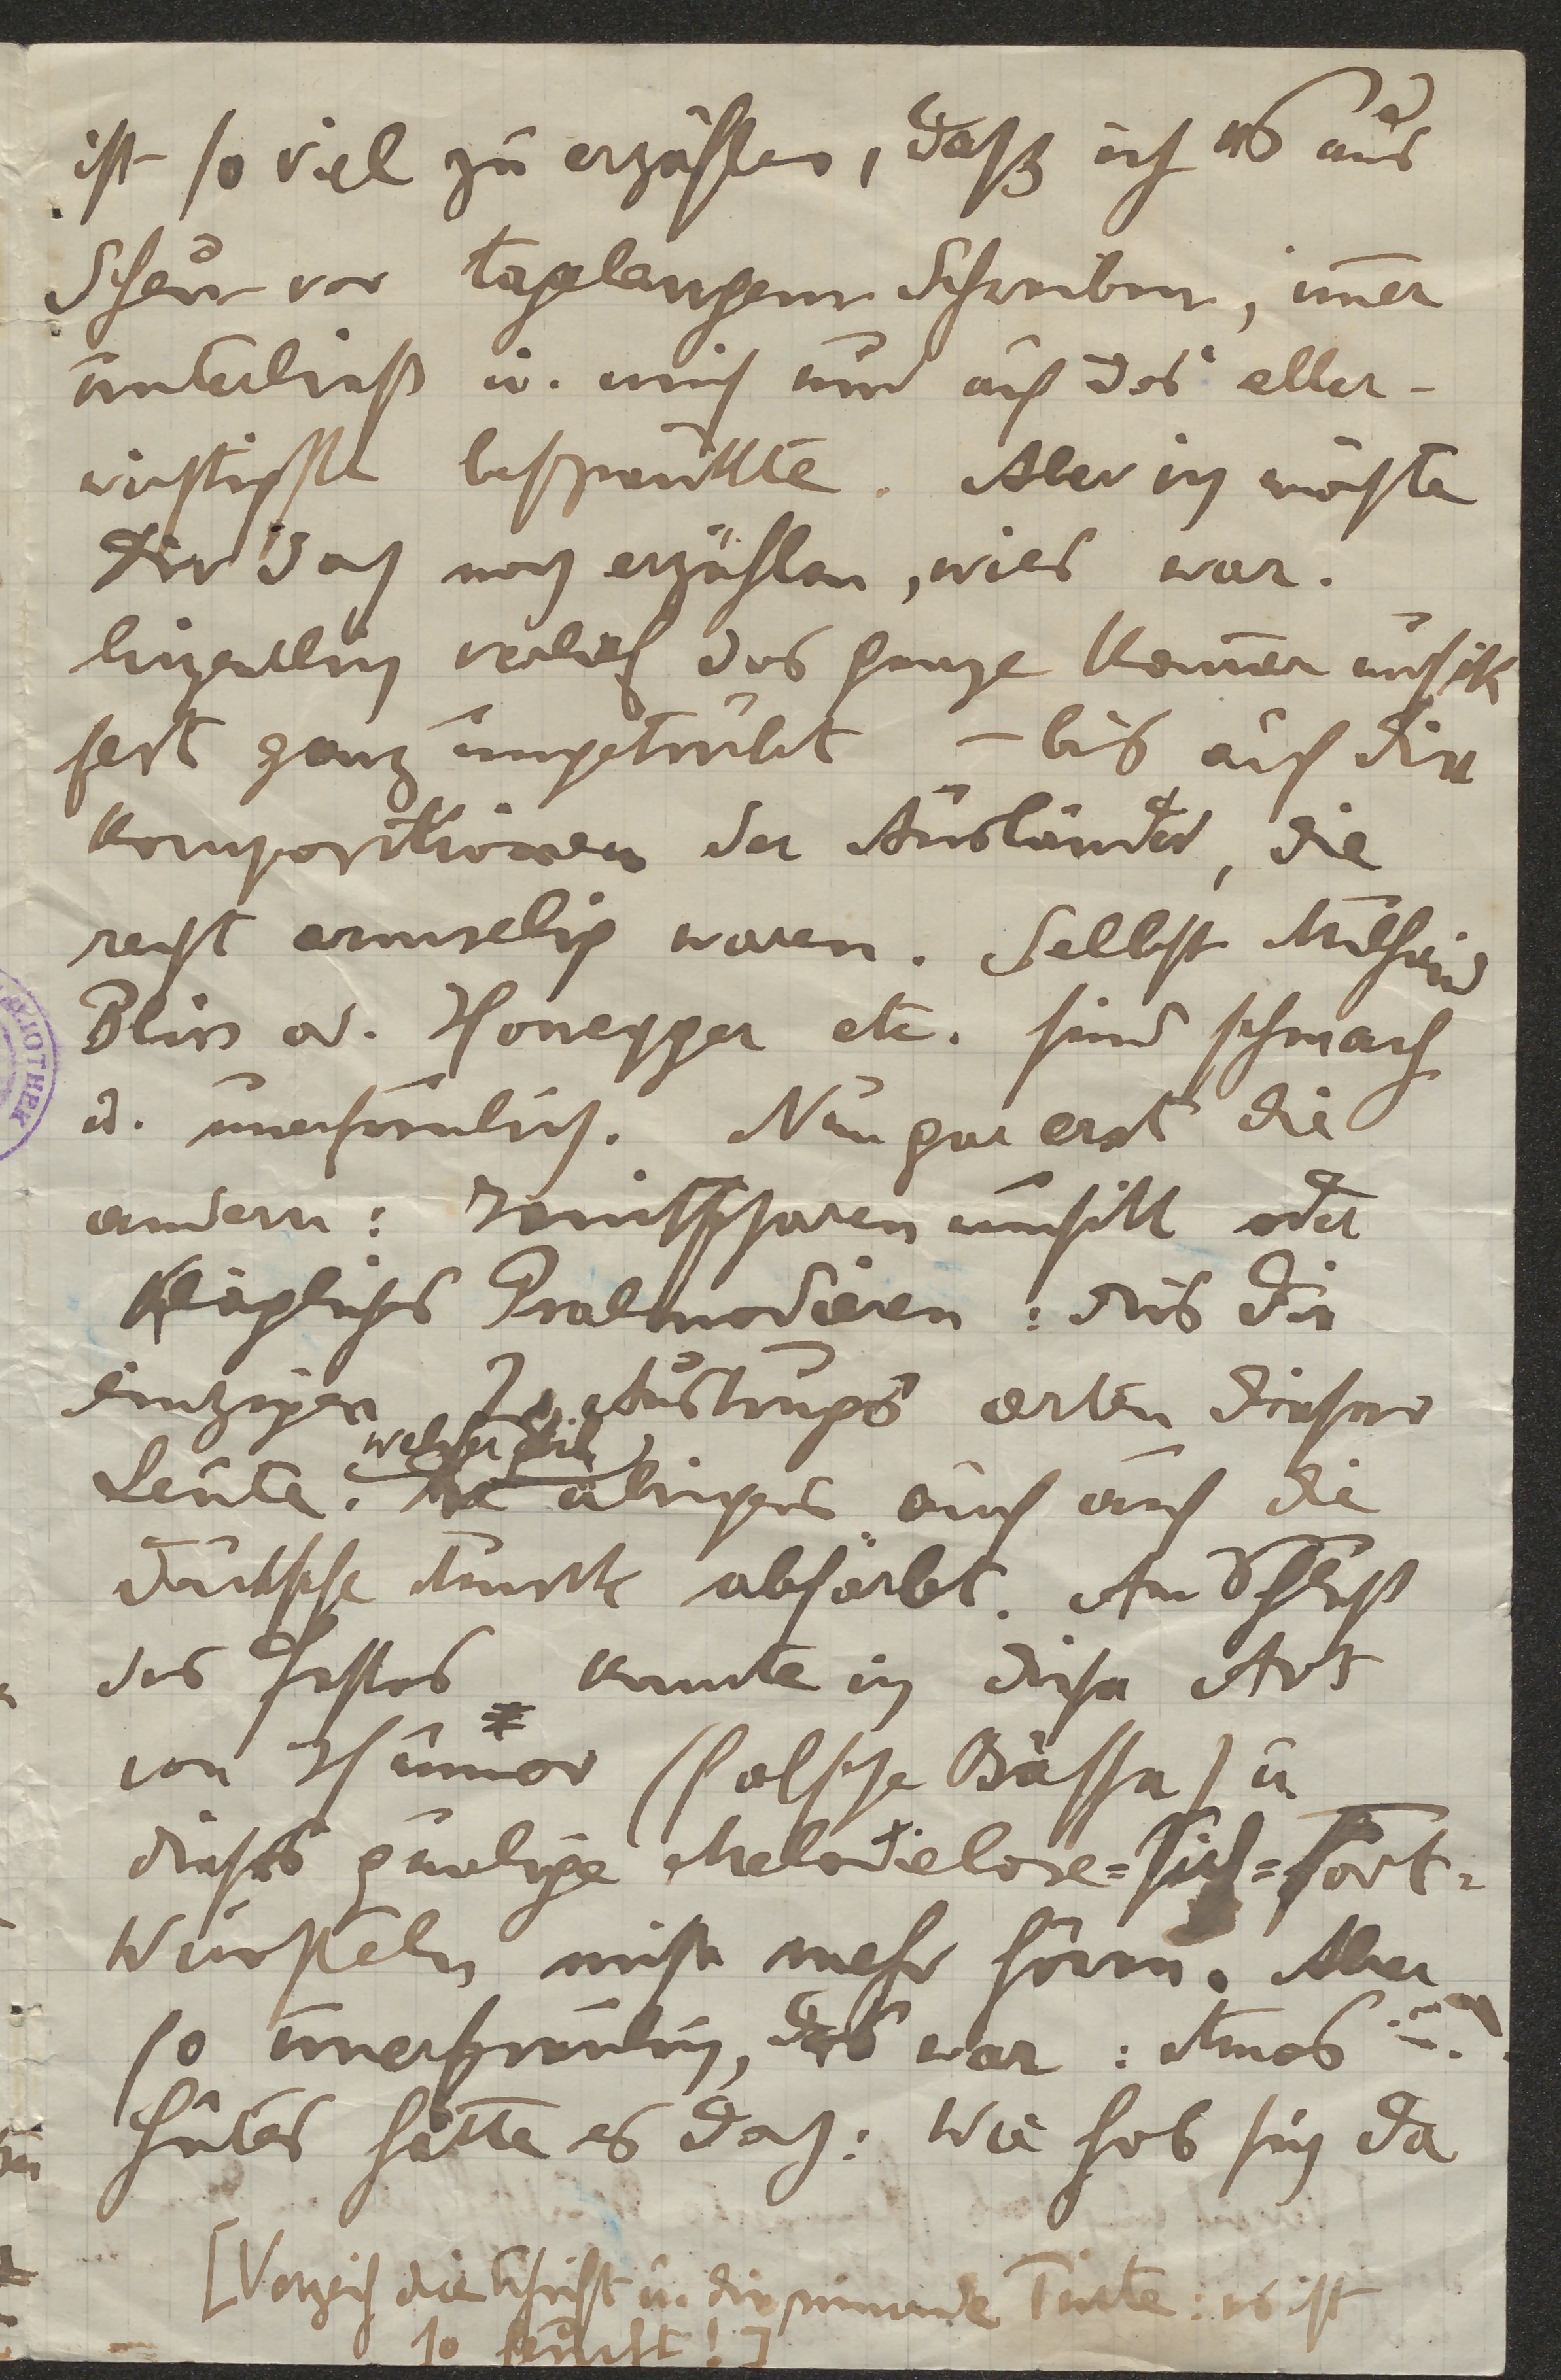 ist so viel zu erzählen, daß ich es aus
Scheu vor tagelangem Schreiben, im̅er
unterließ u. mich nur auf das aller-
wichtigste beschränkte. Aber ich möchte
Dir doch noch erzählen, wies war.
Eigentlich verlief das ganze Kam̅ermusik
fest ganz ungetrübt – bis auf die
Kompositionen der Ausländer, die
recht armselig waren. Selbst Milhaud
Bliss od. Honegger etc. sind schwach
u. unerfreulich. Nun gar erst die
andern: Janitscharenmusik oder
klägliches Psalmodieren: das die
einzigen Ausdrucksarten dieser
Leute. welcher übrigens auch auf die
deutsche Musik abfärbt. Am Schluß
des Festes konnte ich diese Art
von Humor (falsche Bässe) u
dieses Melodielose=Sich=Fort=
Wursteln nicht mehr hören. Aber
so unerfreulich, das war: etwas
Gutes hatte es doch: Wie hob sich da
[Verzeih die Schrift u. die rinnende Tinte: es ist
so feucht!]
BIBLIOTHEK